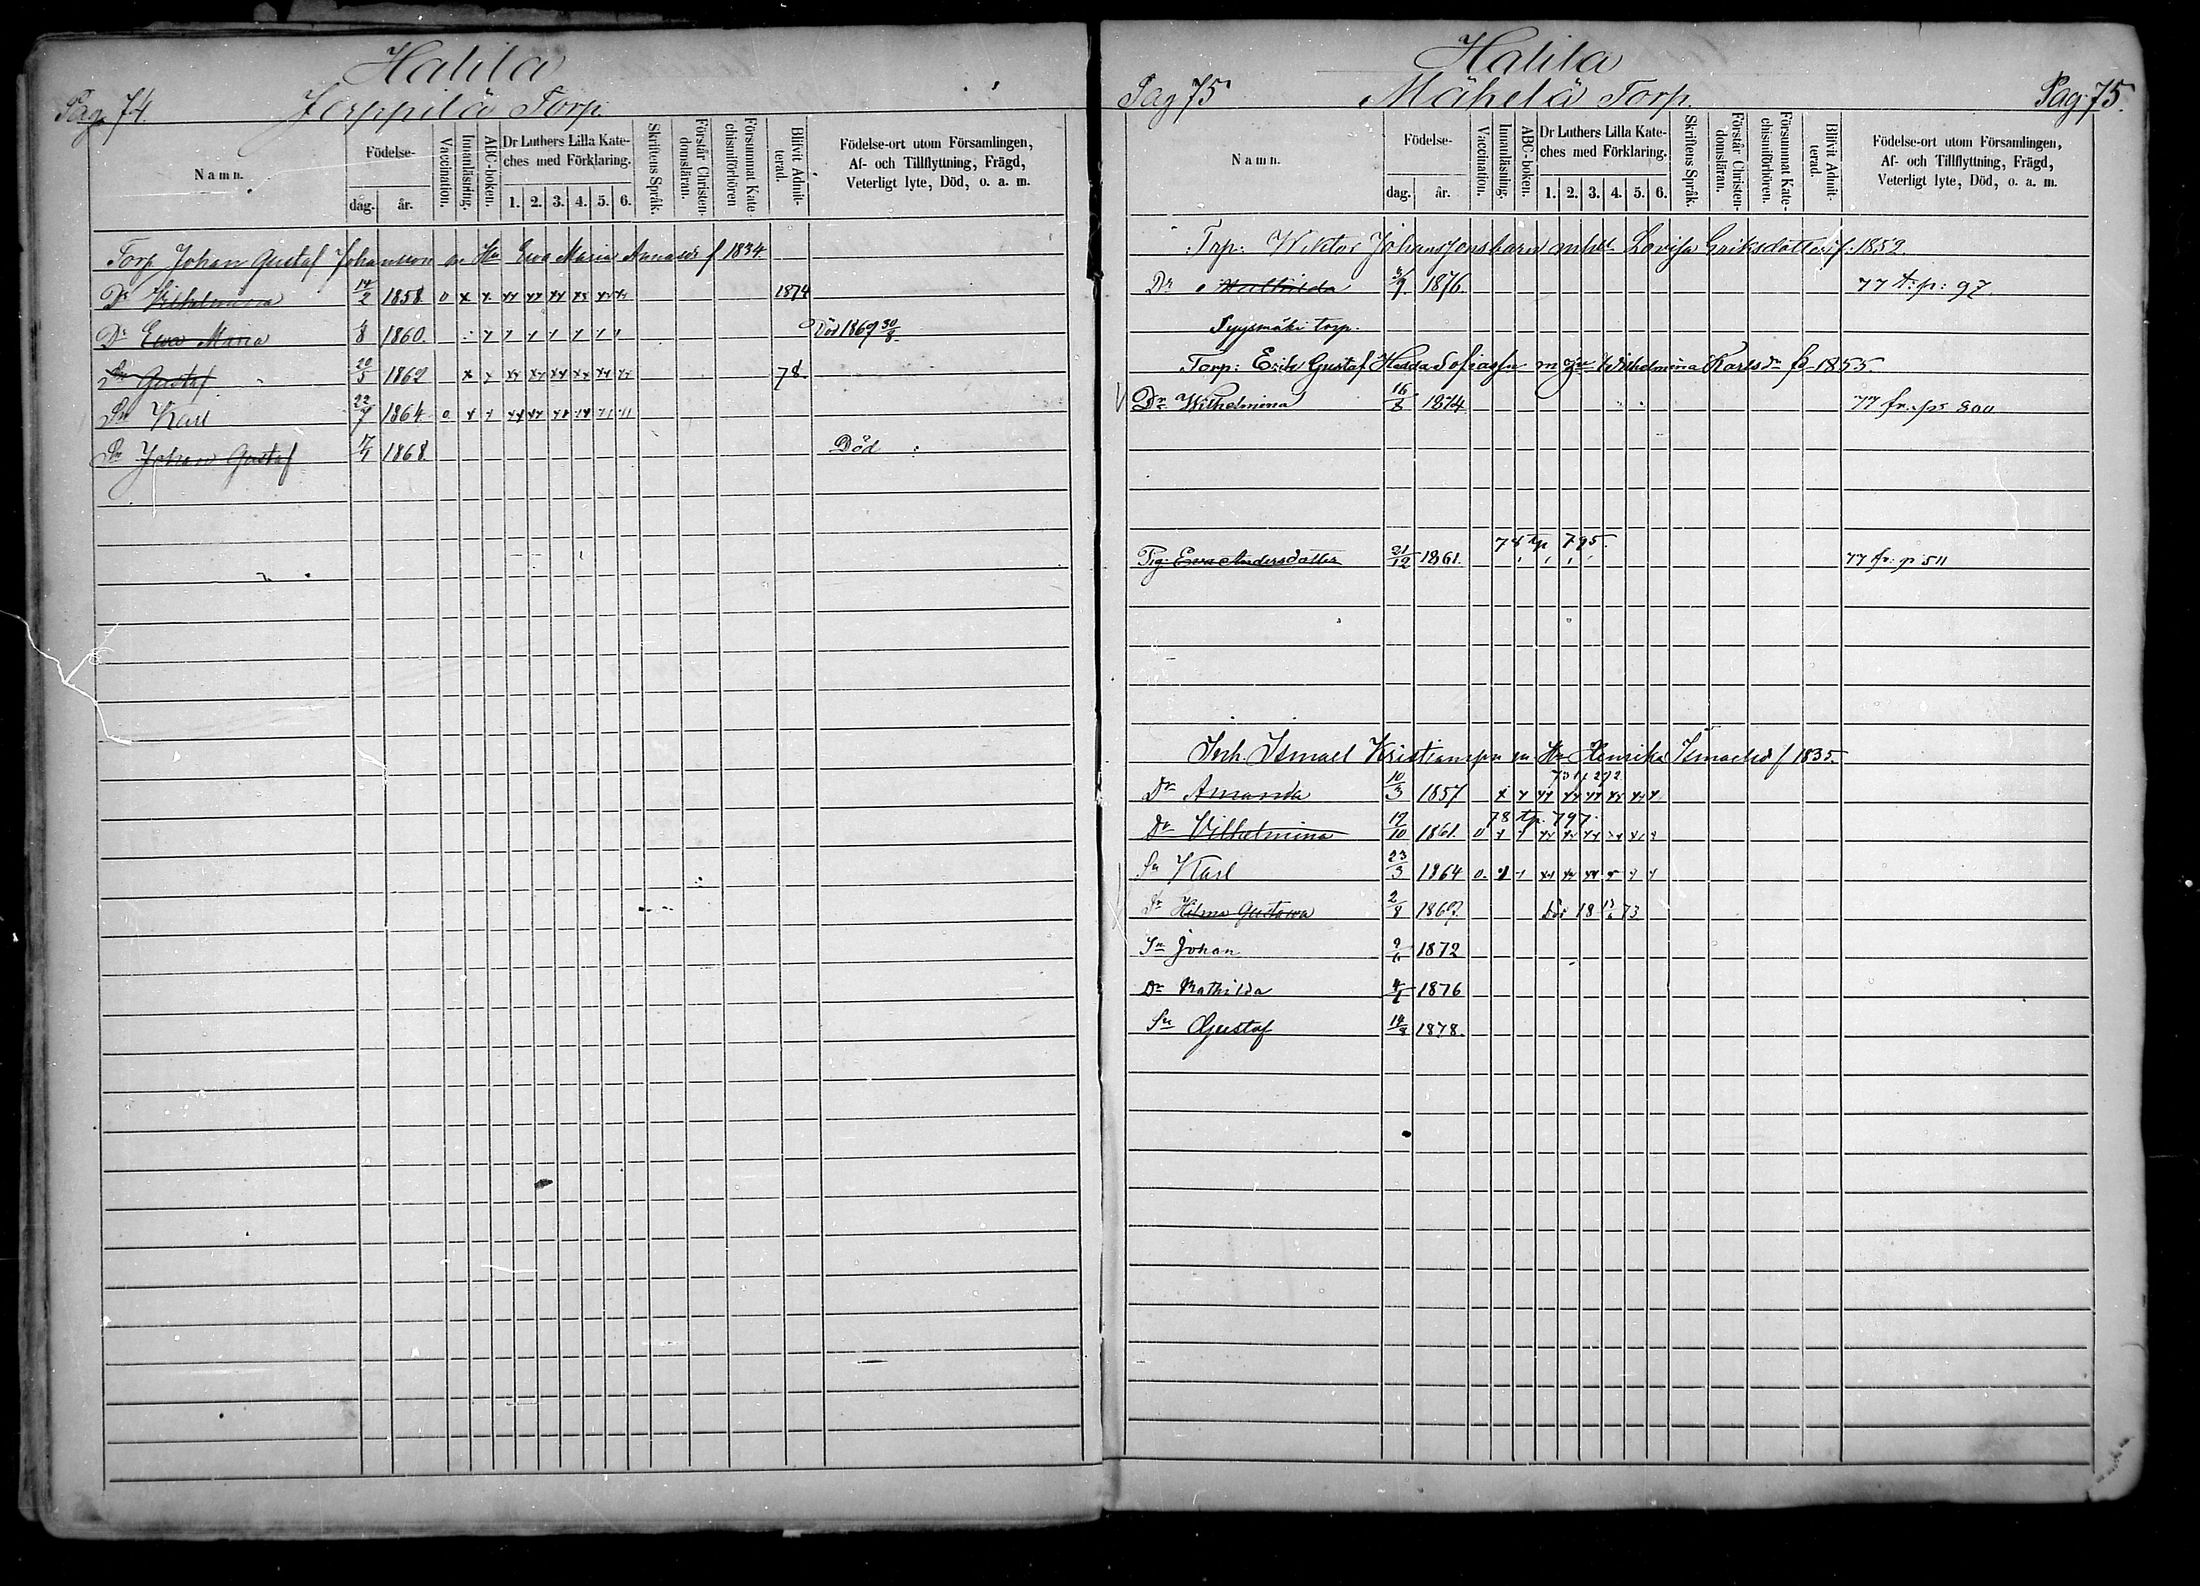 Halila
Pag. 74. Jerppilä Torp.
Namn. Födelse- dag. år. Vaccination. Innanläsning. ABC-boken. Dr Luthers Lilla Kate-ches med Förklaring. 1. 2. 3. 4. 5. 6. Skriftens Språk. Förstår Christen-domsläran. Försummat Kate-chismiförhören Blifvit Admit-terad. Födelse-ort utom Församlingen, Af- och Tillflyttning, Frägd, Veterligt lyte, Död, o. a. m.
Torp Johan Gustaf Johansson m Hu Eva Maria f 1834.
Dr Vilhelmina 14/2 1858 1874
Dr Ewa Maria 1860. Död 1869 30/8
Sn Gustaf 20/5 1862 78.
Sn Karl 22/7 1864
Sn Johan Gustaf 1868. Död
Halila
Pag 75 Mähelä Torp. Pag. 75.
Namn. Födelse- dag. år. Vaccination. Innanläsning. ABC-boken. Dr Luthers Lilla Kate-ches med Förklaring. 1. 2. 3. 4. 5. 6. Skriftens Språk. Förstår Christen-domsläran. Försummat Kate-chismiförhören. Blifvit Admit-terad. Födelse-ort utom Församlingen, Af- och Tillflyttning, Frägd, Veterligt lyte, Död, o. a. m.
Torp: Wiktor Johanssons barn m hu Lovisa Eriksdotter f. 1852.
Dr 1876. 77 t. p: 97.
Syysmäki torp.
Torp: Erik Gustaf Hedda Sofiasson m Hu Wilhelmina Karlsdr f. 1855
Dr Wilhelmina 16/8 1874 77 fr. p. 800
78 tp 795.
Pig. Ewa Andersdotter 21/12 1861. 77 fr: p 511
Inh. Ismael Kristiansson m Hu Henrika Ismaelsd f 1835.
Dr Amanda 10/3 1857
78 tp. 797.
Dr Vilhelmina 17/10 1861.
Sn Karl 23/3 1864
Dr Hilma Gustava 2/8 1869. Död 18 73
Sn Johan 1872
Dr Mathilda 1876
Sn Gustaf 14/8 1878.